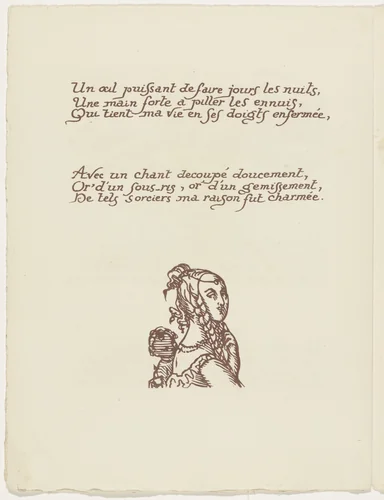 Un œil puissant de faire jours les nuits,
Une main forte à piller les ennuis,
Qui tient ma vie en ses doigts enfermée,
Avec un chant decoupé doucement,
Or' d'un sous-ris, or' d'un gemissement,
De tels sorciers ma raison fut charmée.